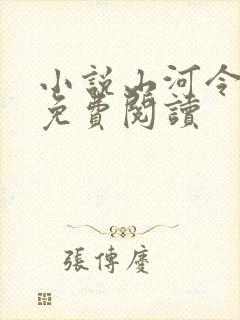 小説山河令
免費閱讀
張傳慶